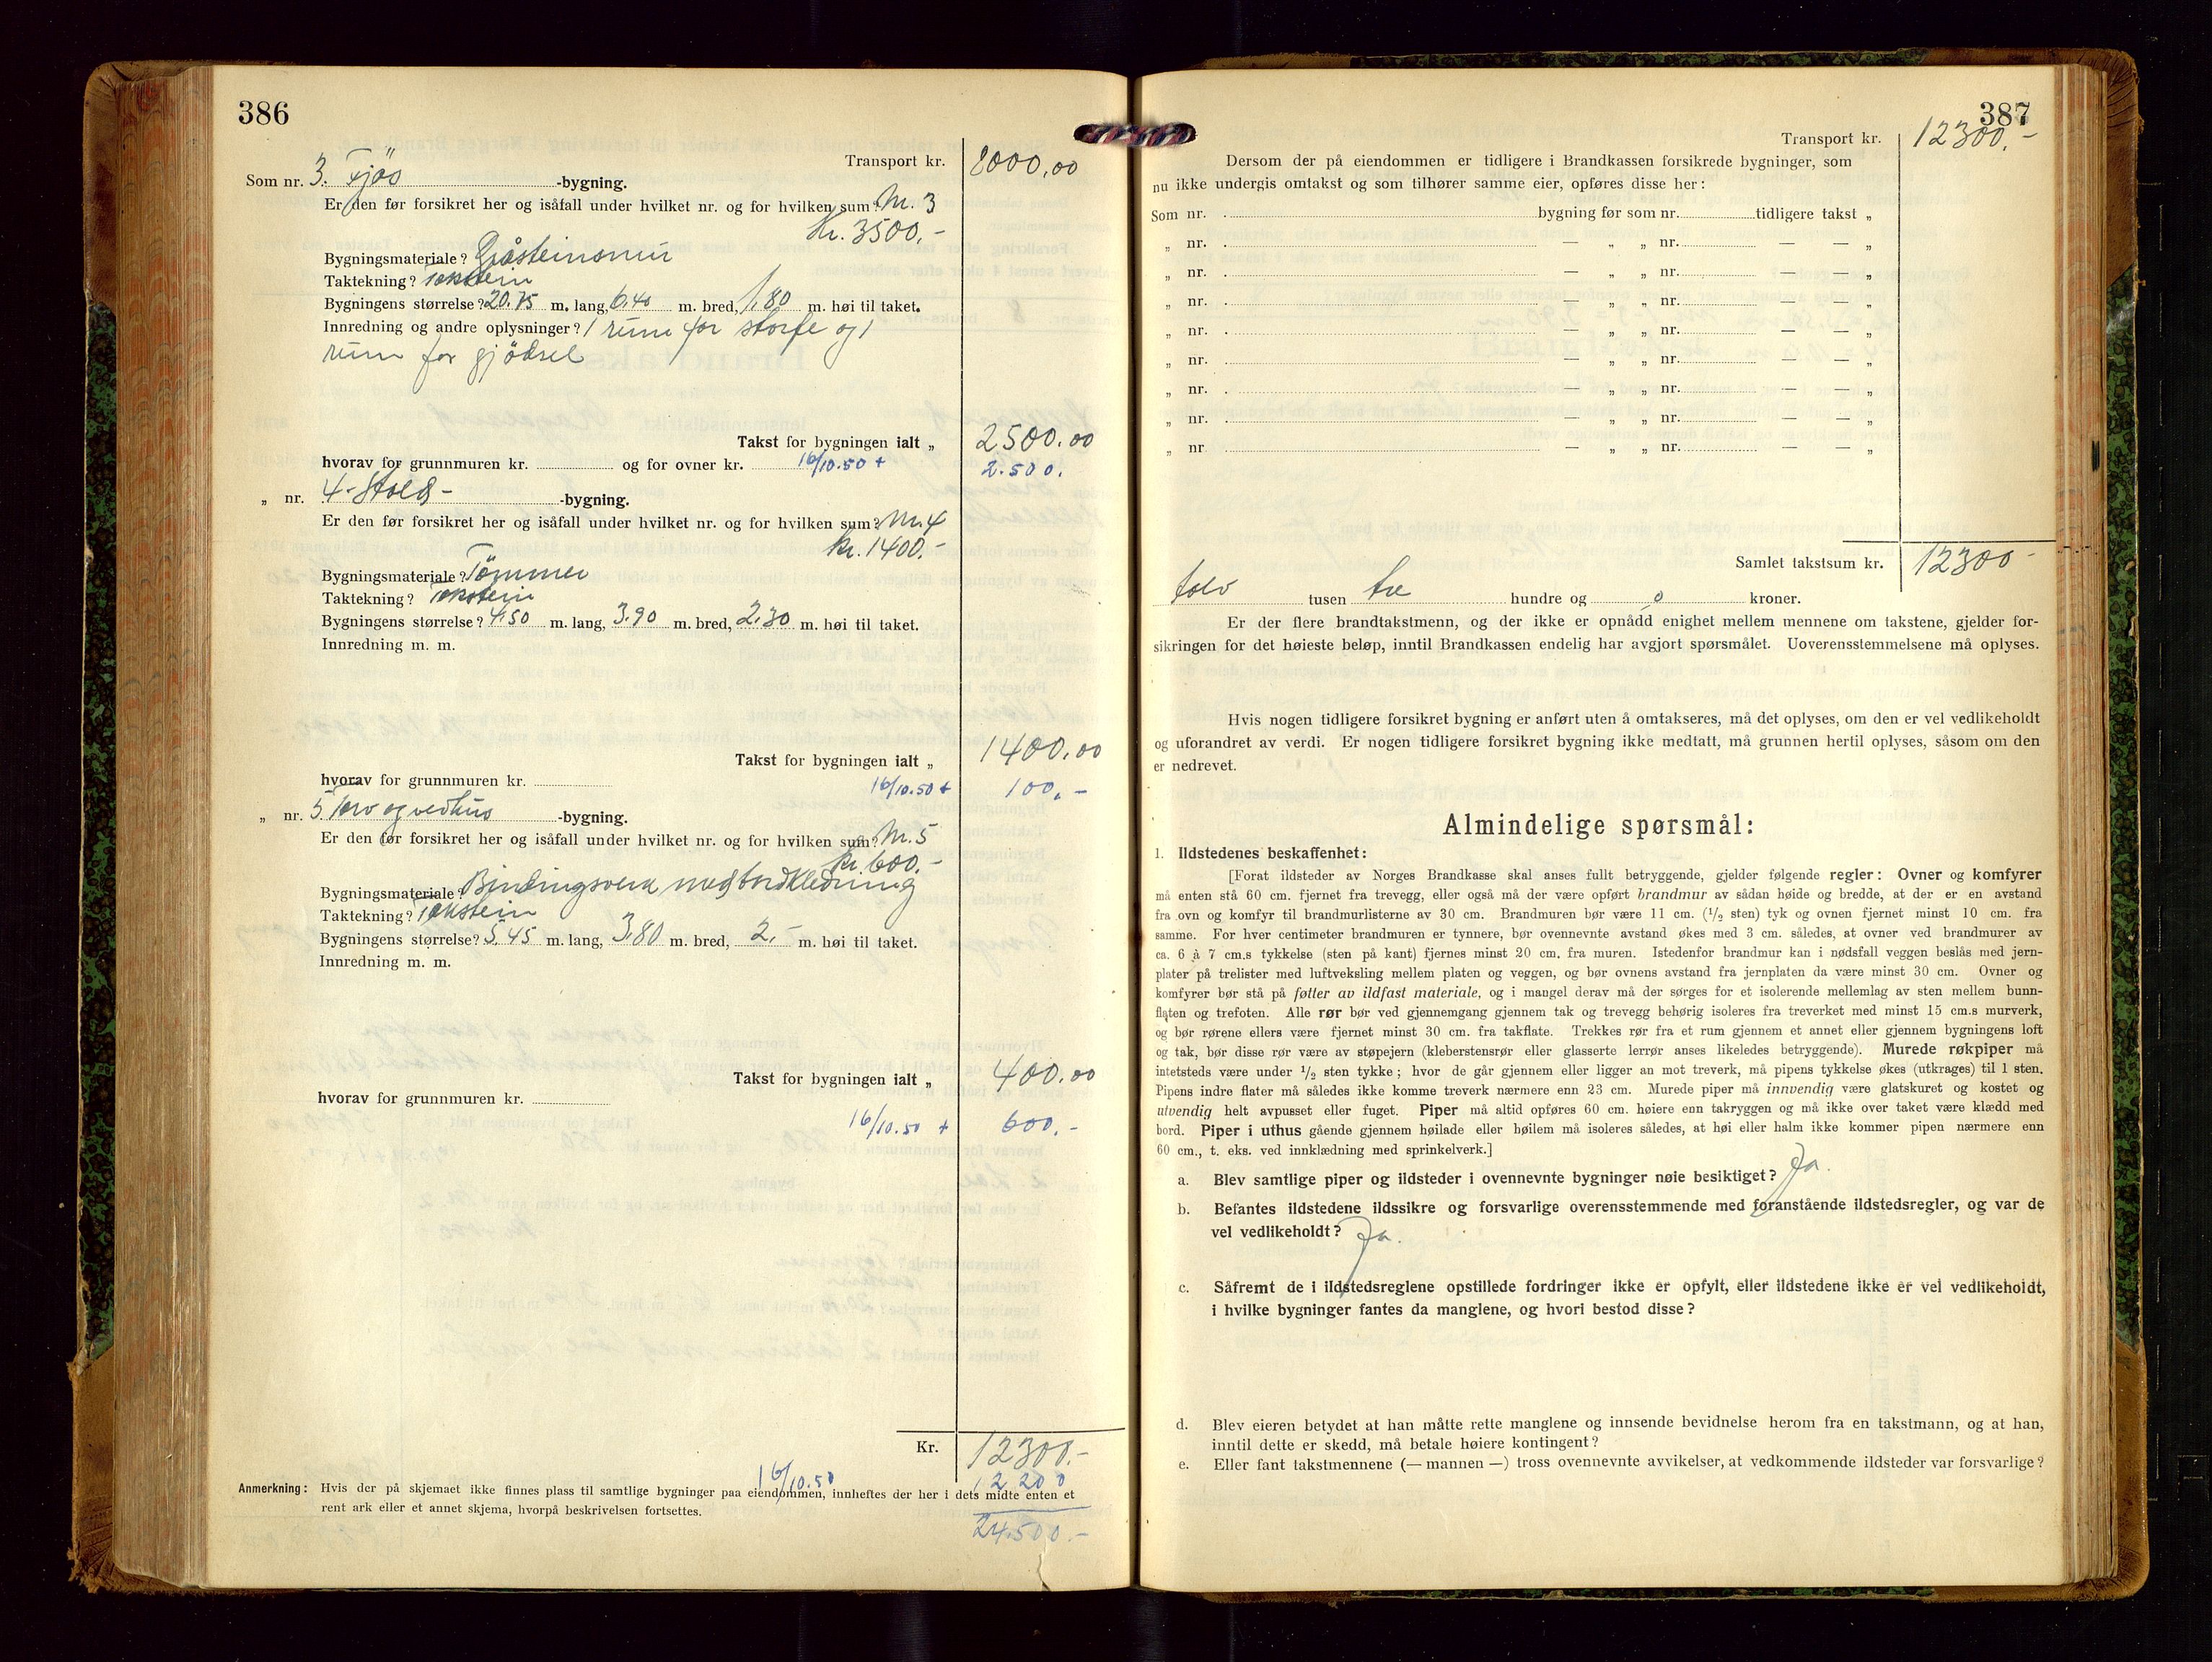 386
Transport kr. 8000,00
Som nr. 3. Fjös -bygning.
Er den før forsikret her og isåfall under hvilket nr. og for hvilken sum? Nr. 3
Kr. 3500,-
Bygningsmateriale? Gråsteinsmur
Taktekning? Takstein
Bygningens størrelse? 20.75 m. lang, 6,40 m. bred, 1,80 m. høi til taket.
Innredning og andre oplysninger? 1 rum for storfe og 1
rum for gjödsel
Takst for bygningen ialt „ 2500,00
hvorav for grunnmuren kr. og for ovner kr. 16/10.50 + 2.500.
„ nr. 4-Stols- -bygning.
Er den før forsikret her og isåfall under hvilket nr. og for hvilken sum? Nr. 4
kr. 1400.-
Bygningsmateriale? Tömmer
Taktekning? Takstein
Bygningens størrelse? 4,50 m. lang, 3,90 m. bred, 2,30 m. høi til taket.
Innredning m. m.
Takst for bygningen ialt „ 1400,00
hvorav for grunnmuren kr. 16/10.50 + 100,-
„ nr. 5. Torv og vedhus -bygning.
Er den før forsikret her og isåfall under hvilket nr. og for hvilken sum? Nr. 5
kr. 600.-
Bygningsmateriale? Bindingsverk med bordkledning
Taktekning? Takstein
Bygningens størrelse? 5,45 m. lang, 3,80 m. bred, 2,- m. høi til taket.
Innredning m. m.
Takst for bygningen ialt „ 400,00
hvorav for grunnmuren kr.
16/10.50 + 600.-
Kr. 12300.-
16/10.50 12200
Anmerkning: Hvis der på skjemaet ikke finnes plass til samtlige bygninger paa eiendommen, innheftes der her i dets midte enten et
rent ark eller et annet skjema, hvorpå beskrivelsen fortsettes.
24.500.-
387
Transport kr. 12300.-
Dersom der på eiendommen er tidligere i Brandkassen forsikrede bygninger, som
nu ikke undergis omtakst og som tilhører samme eier, opføres disse her:
Som nr. bygning før som nr. tidligere takst „
„ nr. — „ „ nr. — — „
„ nr. — „ „ nr. — — „
„ nr. — „ „ nr. — — „
„ nr. — „ „ nr. — — „
„ nr. — „ „ nr. — — „
„ nr. — „ „ nr. — — „
„ nr. — „ „ nr. — — „
„ nr. — „ „ nr. — — „
Samlet takstsum kr. 12300-
tolv tusen tre hundre og o kroner.
Er der flere brandtakstmenn, og der ikke er opnådd enighet mellem mennene om takstene, gjelder for-
sikringen for det høieste beløp, inntil Brandkassen endelig har avgjort spørsmålet. Uoverensstemmelsene må oplyses.
Hvis nogen tidligere forsikret bygning er anført uten å omtakseres, må det oplyses, om den er vel vedlikeholdt
og uforandret av verdi. Er nogen tidligere forsikret bygning ikke medtatt, må grunnen hertil oplyses, såsom om den
er nedrevet.
Almindelige spørsmål:
1. Ildstedenes beskaffenhet:
[Forat ildsteder av Norges Brandkasse skal anses fullt betryggende, gjelder følgende regler: Ovner og komfyrer
må enten stå 60 cm. fjernet fra trevegg, eller også må der være opført brandmur av sådan høide og bredde, at der er en avstand
fra ovn og komfyr til brandmurlisterne av 30 cm. Brandmuren bør være 11 cm. (1/2 sten) tyk og ovnen fjernet minst 10 cm. fra
samme. For hver centimeter brandmuren er tynnere, bør ovennevnte avstand økes med 3 cm. således, at ovner ved brandmurer av
ca. 6 à 7 cm.s tykkelse (sten på kant) fjernes minst 20 cm. fra muren. Istedenfor brandmur kan i nødsfall veggen beslås med jern-
plater på trelister med luftveksling mellem platen og veggen, og bør ovnens avstand fra jernplaten da være minst 30 cm. Ovner og
komfyrer bør stå på føtter av ildfast materiale, og i mangel derav må der sørges for et isolerende mellemlag av sten mellem bunn-
flaten og trefoten. Alle rør bør ved gjennemgang gjennem tak og trevegg behørig isoleres fra treverket med minst 15 cm.s murverk,
og bør rørene ellers være fjernet minst 30 cm. fra takflate. Trekkes rør fra et rum gjennem et annet eller gjennem bygningens loft
og tak, bør disse rør være av støpejern (kleberstensrør eller glasserte lerrør anses likeledes betryggende). Murede røkpiper må
intetsteds være under 1/2 sten tykke; hvor de går gjennem eller ligger an mot treverk, må pipens tykkelse økes (utkrages) til 1 sten.
Pipens indre flater må således ikke komme treverk nærmere enn 23 cm. Murede piper må innvendig være glatskuret og kostet og
utvendig helt avpusset eller fuget. Piper må altid opføres 60 cm. høiere enn takryggen og må ikke over taket være klædd med
bord. Piper i uthus gående gjennem høilade eller høilem må isoleres således, at høi eller halm ikke kommer pipen nærmere enn
60 cm., t. eks. ved innklædning med sprinkelverk.]
a. Blev samtlige piper og ildsteder i ovennevnte bygninger nøie besiktiget? Ja.
b. Befantes ildstedene ildssikre og forsvarlige overensstemmende med foranstående ildstedsregler, og var de
vel vedlikeholdt? Ja.
c. Såfremt de i ildstedsreglene opstillede fordringer ikke er opfylt, eller ildstedene ikke er vel vedlikeholdt,
i hvilke bygninger fantes da manglene, og hvori bestod disse?
d. Blev eieren betydet at han måtte rette manglene og innsende bevidnelse herom fra en takstmann, og at han,
inntil dette er skedd, må betale høiere kontingent?
e. Eller fant takstmennene (— mannen —) tross ovennevnte avvikelser, at vedkommende ildsteder var forsvarlige?